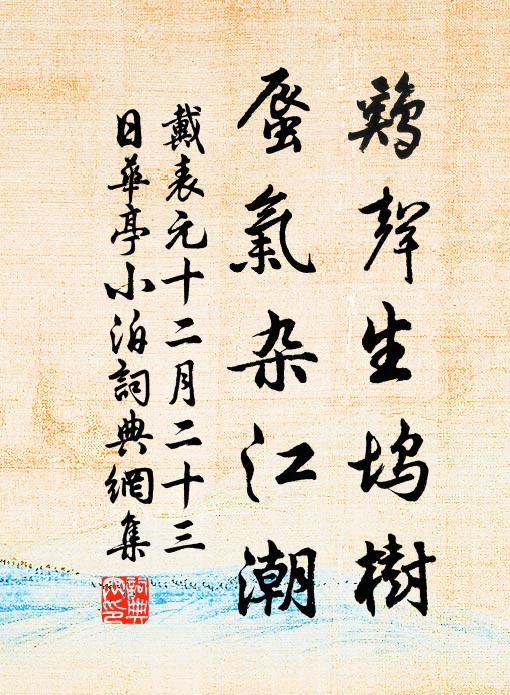 鷄聲生坞樹
蜃氣杂江潮
戴表元十二月二十三
日華亭小泊詞典網集